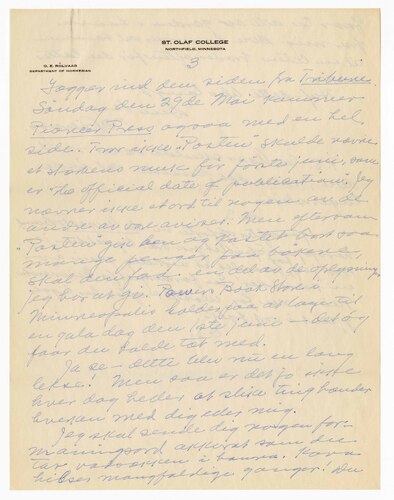 ST. OLAF COLLEGE
NORTHFIELD, MINNESOTA
O. E. RÖLVAAG
DEPARTMENT OF NORWEGIAN
3
Legger ind den siden fra Tribune.
Søndag den 29de Mai kommer
Pioneer Press ogsaa med en hel
side. Tror ikke "Posten" skulde
før første juni, som
er "the official date of publication". Jeg
nævner ikke et ord til nogen av de
andre av vore aviser. Men eftersom
"Posten" gik hen og kastet bort saa
mange penger paa bøkene,
skal den faa en del av de oplysninger
jeg har at gi. Powers Book Store i
Minneapolis holder paa at lage til
en gala dag den 1ste juni – det og
faar du holde tæt med.
Ja se – dette blev nu en lang
lekse! Men saa er det jo ikke
hver dag heller at slike ting hænder
hverken med dig eller mig.
Jeg skal sende dig nogen for-
maningsord akkurat som du
tar i haand. Kona
hilser mangfoldige ganger! Du